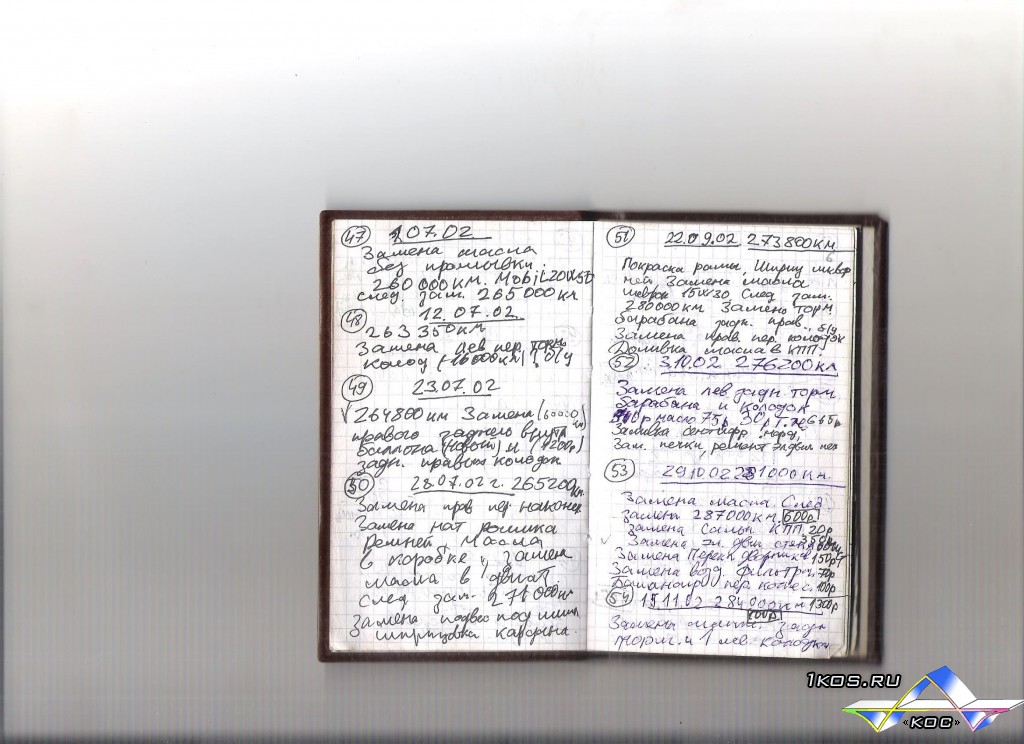 47 1.07.02
Замена масла
без промывки.
260 000 км. Mobil
след. зам. 265 000 км
48 12.07.02
263 350 км
Замена лев пер. торм
колод б/у
49 23.07.02
264800 км Замена
правого заднего
баллона (новый) и (1200р)
задн. правых колодок
50 28.07.02 г. 265200 км
Замена прав пер након
Замена нат ролика
ремней, масла
в коробке, замен
масла в двигат.
след зам. 271 000 км
Замена подвес под
шприцовка кардана.
51 22.09.02 273800 км
Покраска рамы, Шприц шквор
ней, Замена масла
15W30 След зам.
280000 км Замена торм
барабана задн. прав. б/у
Замена прав. пер. колодок
Доливка масла в КПП.
52 3.10.02 276200 км
Замена лев задн торм.
барабана и колодок
масло 75р
Заливка
Зам. печки, ремонт эл двиг печ
53 29.10.02 281000 км.
Замена масла. След
замена 287000 км. 600р
Замена Сальн КПП 20р
Замена эл. двиг
Замена Перекл дворников 150р
Замена возд. Фильтра. 70р
пер. колес. 100р
54 15.11.02 284000 км 1300р
Замена задн
торм. и 1 лев колодки
1KOS.RU
«КОС»